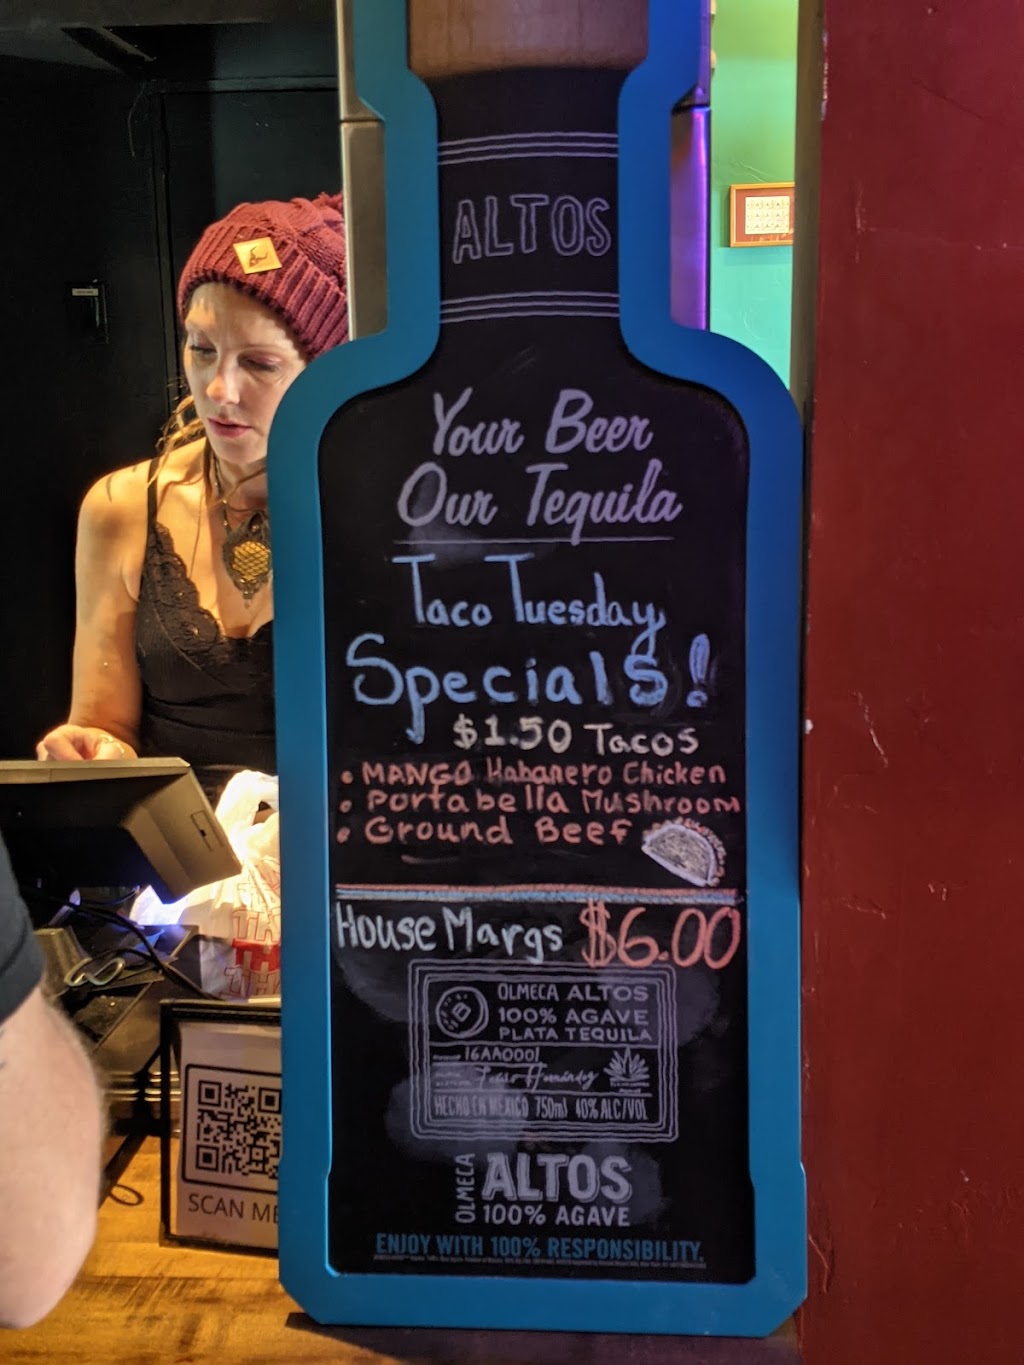 ALTOS
Your Beer
Our Tequila
Taco Tuesday
Specials!
$1.50 Tacos
• MANGO Habanero Chicken
• Portabella Mushroom
• Ground Beef
House Margs $6.00
OLMECA ALTOS
100% AGAVE
PLATA TEQUILA
16AA0001
HECHO EN MEXICO 750ml 40% ALC/VOL
OLMECA
ALTOS
100% AGAVE
ENJOY WITH 100% RESPONSIBILITY.
SCAN ME